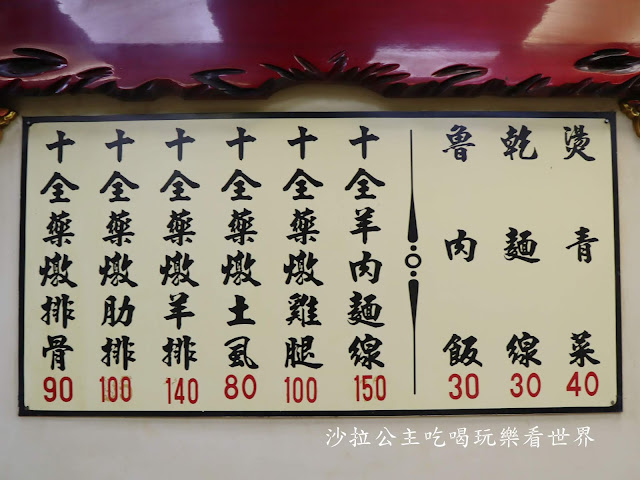 燙青菜 40
乾麵線 30
魯肉飯 30
十全羊肉麵線 150
十全藥燉雞腿 100
十全藥燉土虱 80
十全藥燉羊排 140
十全藥燉肋排 100
十全藥燉排骨 90
沙拉公主吃喝玩樂看世界